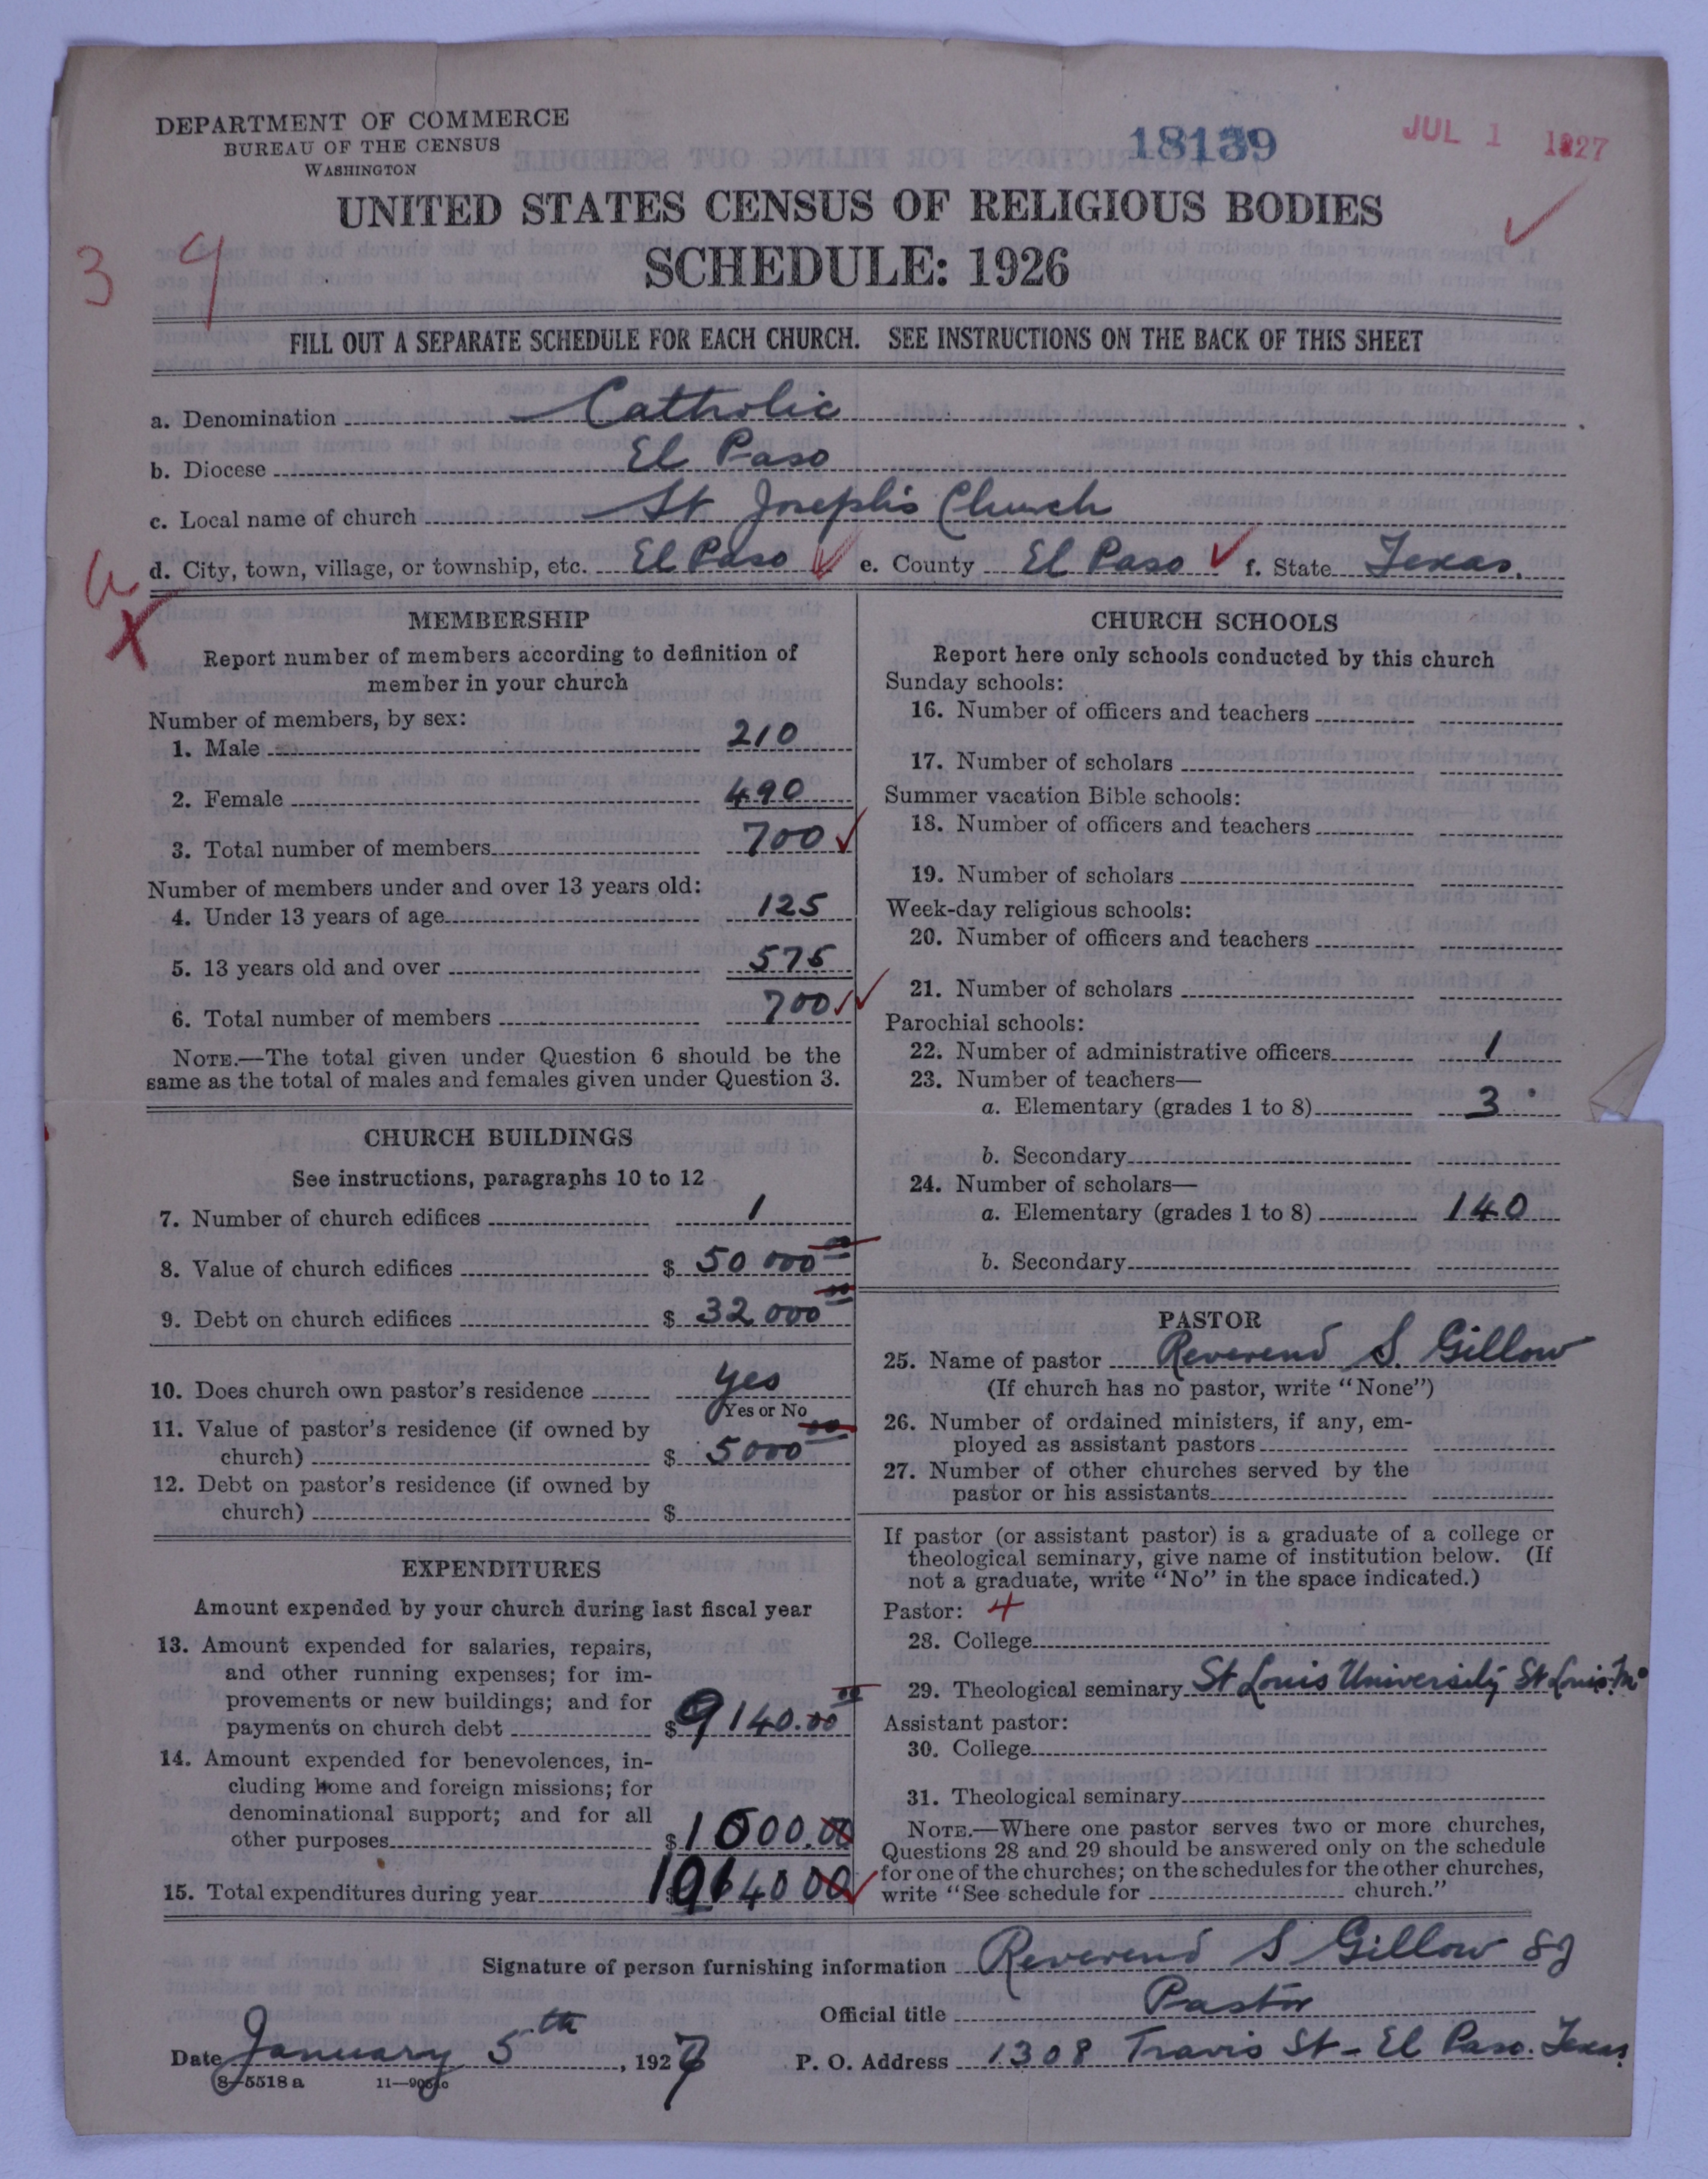 DEPARTMENT OF COMMERCE
BUREAU OF THE CENSUS
WASHINGTON
18139
JUL 1 1927
UNITED STATES CENSUS OF RELIGIOUS BODIES
SCHEDULE: 1926
3 9
FILL OUT A SEPARATE SCHEDULE FOR EACH CHURCH. SEE INSTRUCTIONS ON THE BACK OF THIS SHEET
a. Denomination Catholic
b. Diocese El Paso
c. Local name of church St Joseph's Church
d. City, town, village, or township, etc. El Paso e. County El Paso f. State Texas.
MEMBERSHIP
Report number of members according to definition of
member in your church
Number of members, by sex:
1. Male 210
2. Female 490
3. Total number of members 700
Number of members under and over 13 years old:
4. Under 13 years of age 125
5. 13 years old and over 575
6. Total number of members 700
NOTE.—The total given under Question 6 should be the
same as the total of males and females given under Question 3.
CHURCH BUILDINGS
See instructions, paragraphs 10 to 12
7. Number of church edifices 1
8. Value of church edifices $ 50 000 00
9. Debt on church edifices $ 32,000 00
10. Does church own pastor's residence yes
Yes or No
11. Value of pastor's residence (if owned by
church) $ 5000 00
12. Debt on pastor's residence (if owned by
church) $
EXPENDITURES
Amount expended by your church during last fiscal year
13. Amount expended for salaries, repairs,
and other running expenses; for im-
provements or new buildings; and for
payments on church debt $ 9140.00
14. Amount expended for benevolences, in-
cluding home and foreign missions; for
denominational support; and for all
other purposes $ 1000.00
15. Total expenditures during year $ 10140 00
CHURCH SCHOOLS
Report here only schools conducted by this church
Sunday schools:
16. Number of officers and teachers
17. Number of scholars
Summer vacation Bible schools:
18. Number of officers and teachers
19. Number of scholars
Week-day religious schools:
20. Number of officers and teachers
21. Number of scholars
Parochial schools:
22. Number of administrative officers 1
23. Number of teachers—
a. Elementary (grades 1 to 8) 3
b. Secondary
24. Number of scholars—
a. Elementary (grades 1 to 8) 140
b. Secondary
PASTOR
25. Name of pastor Reverend S. Gillow
(If church has no pastor, write "None")
26. Number of ordained ministers, if any, em-
ployed as assistant pastors
27. Number of other churches served by the
pastor or his assistants
If pastor (or assistant pastor) is a graduate of a college or
theological seminary, give name of institution below. (If
not a graduate, write "No" in the space indicated.)
Pastor: 4
28. College
29. Theological seminary St Louis University St Louis. Mo
Assistant pastor:
30. College
31. Theological seminary
NOTE.—Where one pastor serves two or more churches,
Questions 28 and 29 should be answered only on the schedule
for one of the churches; on the schedules for the other churches,
write "See schedule for church."
Signature of person furnishing information Reverend S Gillow SJ
Official title Pastor
Date January 5th, 1927 P. O. Address 1308 Travis St - El Paso. Texas
8—5518 a